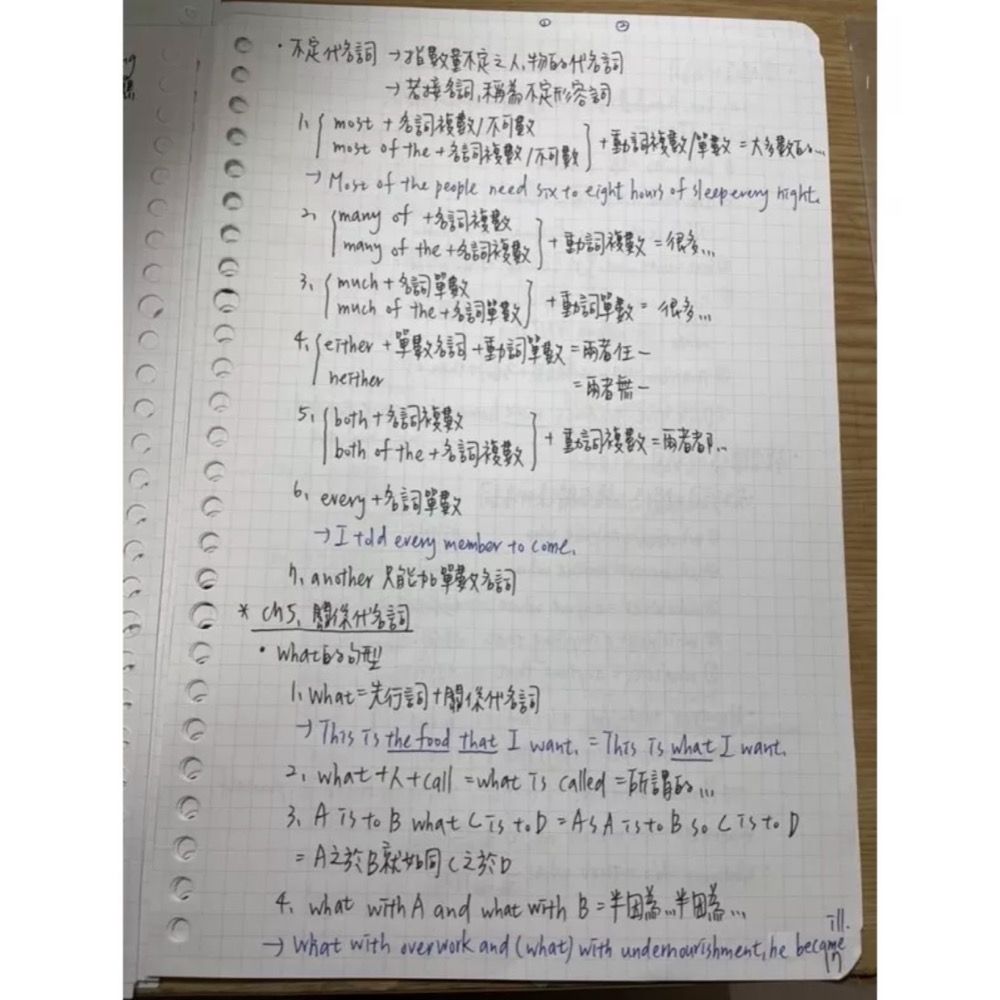 ① ②
・不定代名詞 → 指數量不定之人、物的代名詞
→ 若接名詞,稱為不定形容詞
1. most + 名詞複數/不可數
most of the + 名詞複數/不可數 + 動詞複數/單數 = 大多數的...
→ Most of the people need six to eight hours of sleep every night.
2. many of + 名詞複數
many of the + 名詞複數 + 動詞複數 = 很多...
3. much + 名詞單數
much of the + 名詞單數 + 動詞單數 = 很多...
4. either + 單數名詞 + 動詞單數 = 兩者任一
neither = 兩者無一
5. both + 名詞複數
both of the + 名詞複數 + 動詞複數 = 兩者都...
6. every + 名詞單數
→ I told every member to come.
7. another 只能加單數名詞
* Ch5. 關係代名詞
・what的句型
1. what = 先行詞 + 關係代名詞
→ This is the food that I want. = This is what I want.
2. what + 人 + call = what is called = 所謂的...
3. A is to B what C is to D = As A is to B so C is to D
= A之於B就如同C之於D
4. what with A and what with B = 半因為...半因為...
→ What with overwork and (what) with undernourishment, he became ill.